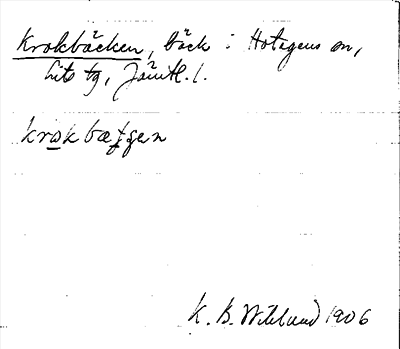 Krokbäcken, bäck i Hotagens sn,
Lits tg, Jämtl. l.
krokbæʈʂen
K. B. Wiklund 1906